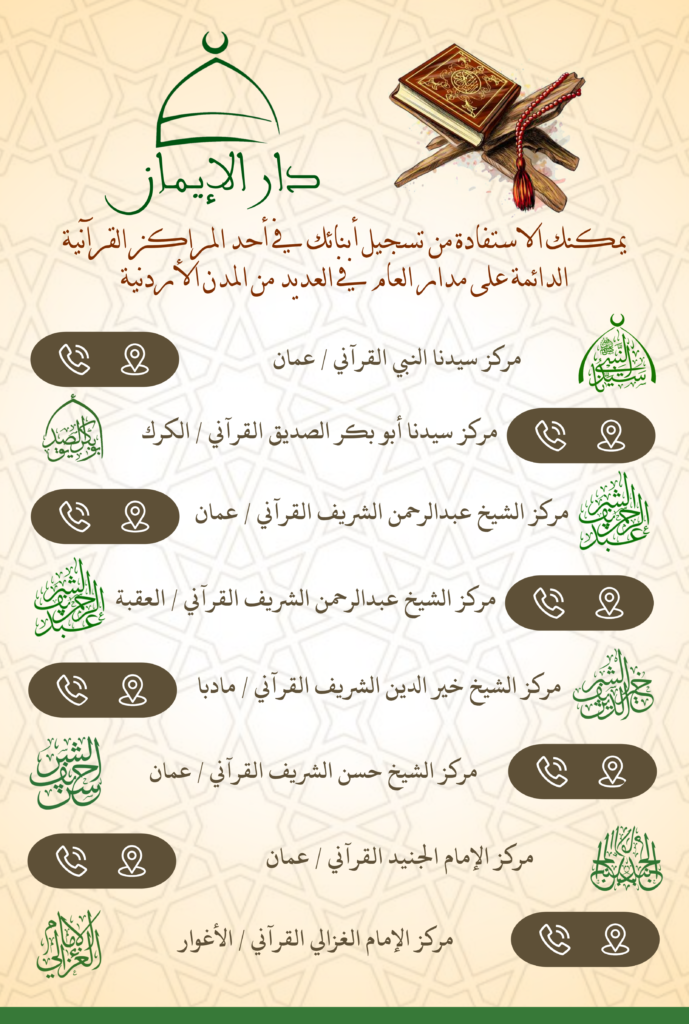 دار الإيمان
يمكنك الاستفادة من تسجيل أبنائك في أحد المراكز القرآنية
الدائمة على مدار العام في العديد من المدن الأردنية
سيدنا النبي
مركز سيدنا النبي القرآني / عمان
مركز سيدنا أبو بكر الصديق القرآني / الكرك
أبو بكر الصديق
عبدالرحمن الشريف
مركز الشيخ عبدالرحمن الشريف القرآني / عمان
مركز الشيخ عبدالرحمن الشريف القرآني / العقبة
عبدالرحمن الشريف
خير الدين الشريف
مركز الشيخ خير الدين الشريف القرآني / مادبا
مركز الشيخ حسن الشريف القرآني / عمان
حسن الشريف
مركز الإمام الجنيد القرآني / عمان
مركز الإمام الغزالي القرآني / الأغوار
الإمام الغزالي